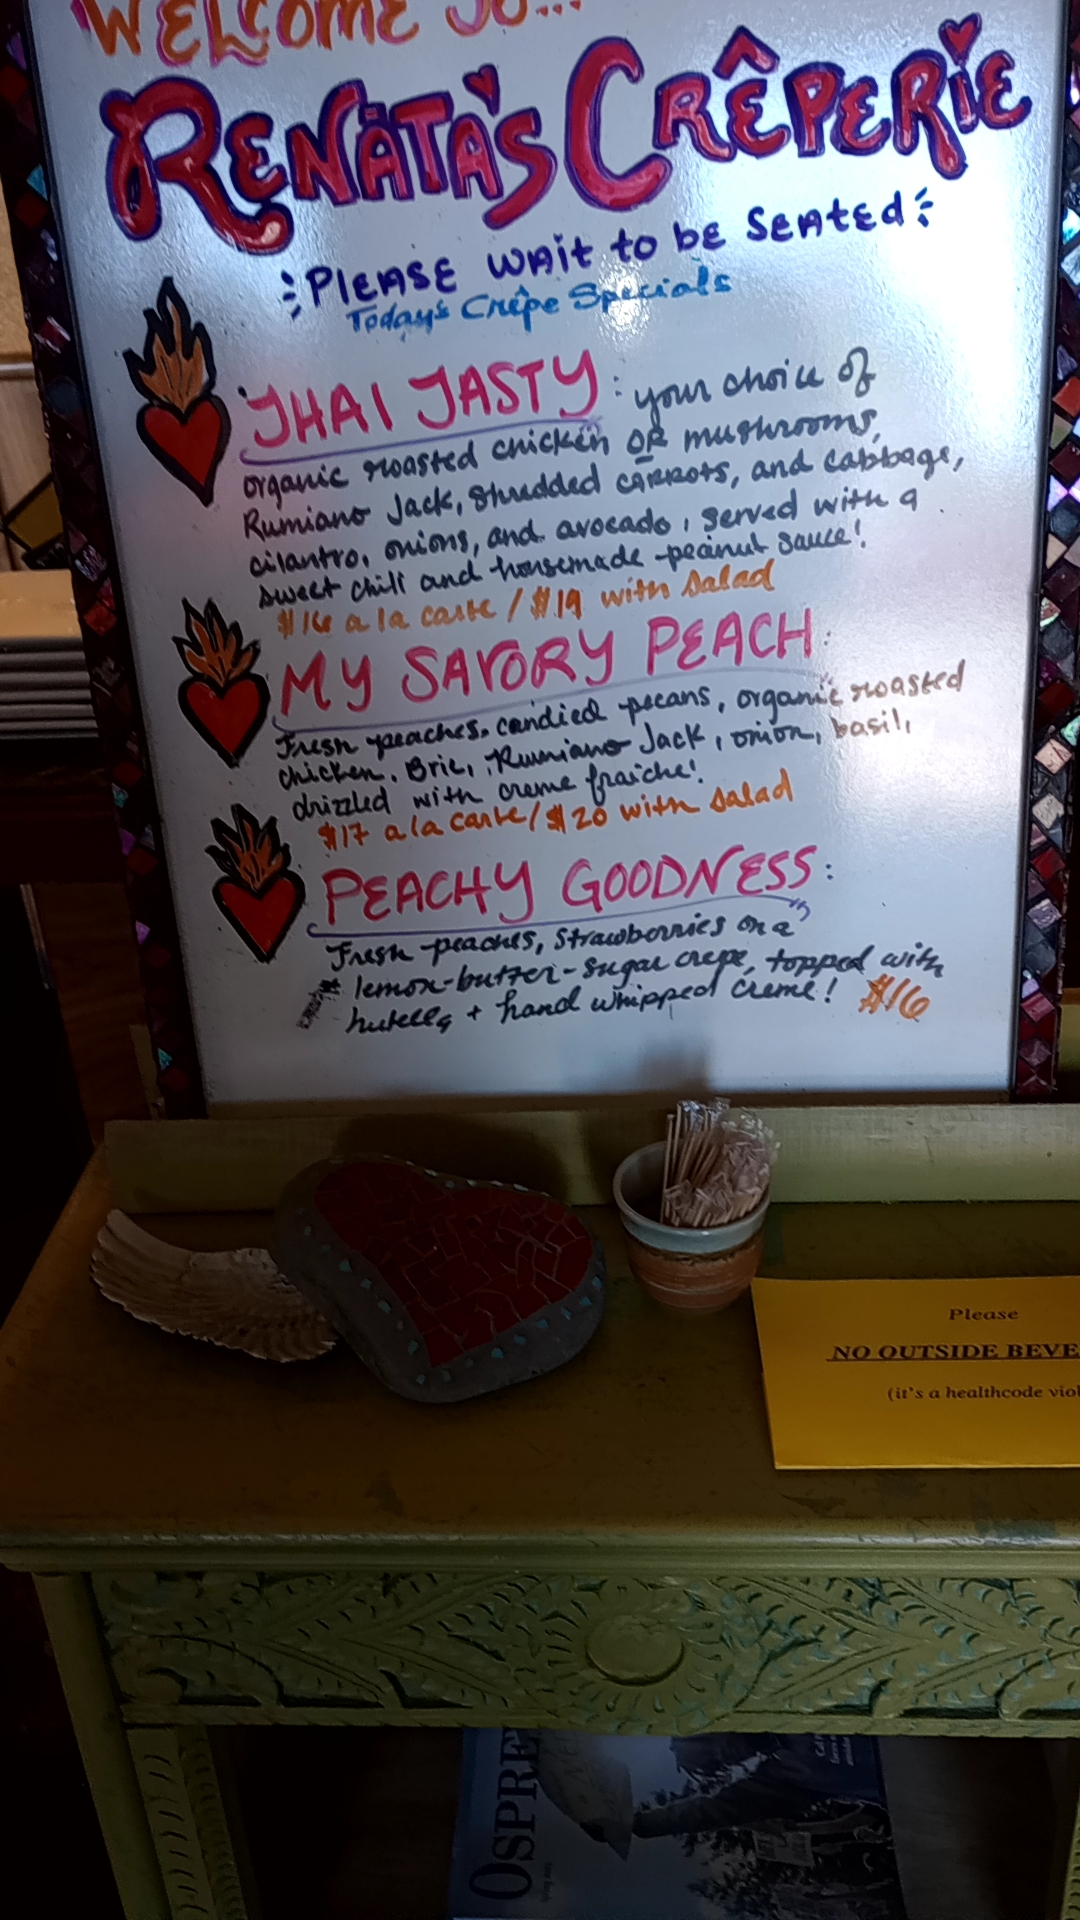 WELCOME TO...
RENATA'S CRÊPERIE
PLEASE WAIT to bE SEATEd
Today's Crêpe Specials
THAI TASTY: your choice of
organic roasted chicken OR mushrooms,
Rumiano Jack, shredded carrots, and cabbage,
cilantro, onions, and avocado, served with a
sweet chili and housemade peanut sauce!
$16 a la carte / $19 with salad
MY SAVORY PEACH:
Fresh peaches, candied pecans, organic roasted
chicken, Brie, Rumiano Jack, onion, basil,
drizzled with creme fraiche!
$17 a la carte / $20 with salad
PEACHY GOODNESS:
Fresh peaches, strawberries on a
lemon-butter-sugar crepe, topped with
nutella + hand whipped creme! $16
Please
NO OUTSIDE BEVE
(it's a healthcode viol
OSPREY